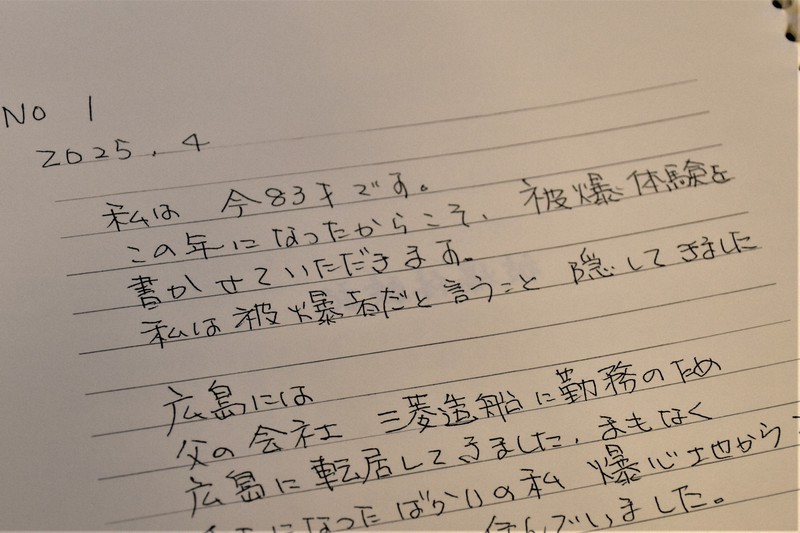 No 1
2025.4
私は 今83才です。
この年になったからこそ、被爆体験を
書かせていただきます。
私は被爆者だと言うこと 隠してきました
広島には
父の会社 三菱造船に勤務のため
広島に転居してきました、まもなく
になったばかりの私 爆心地から
住んでいました。